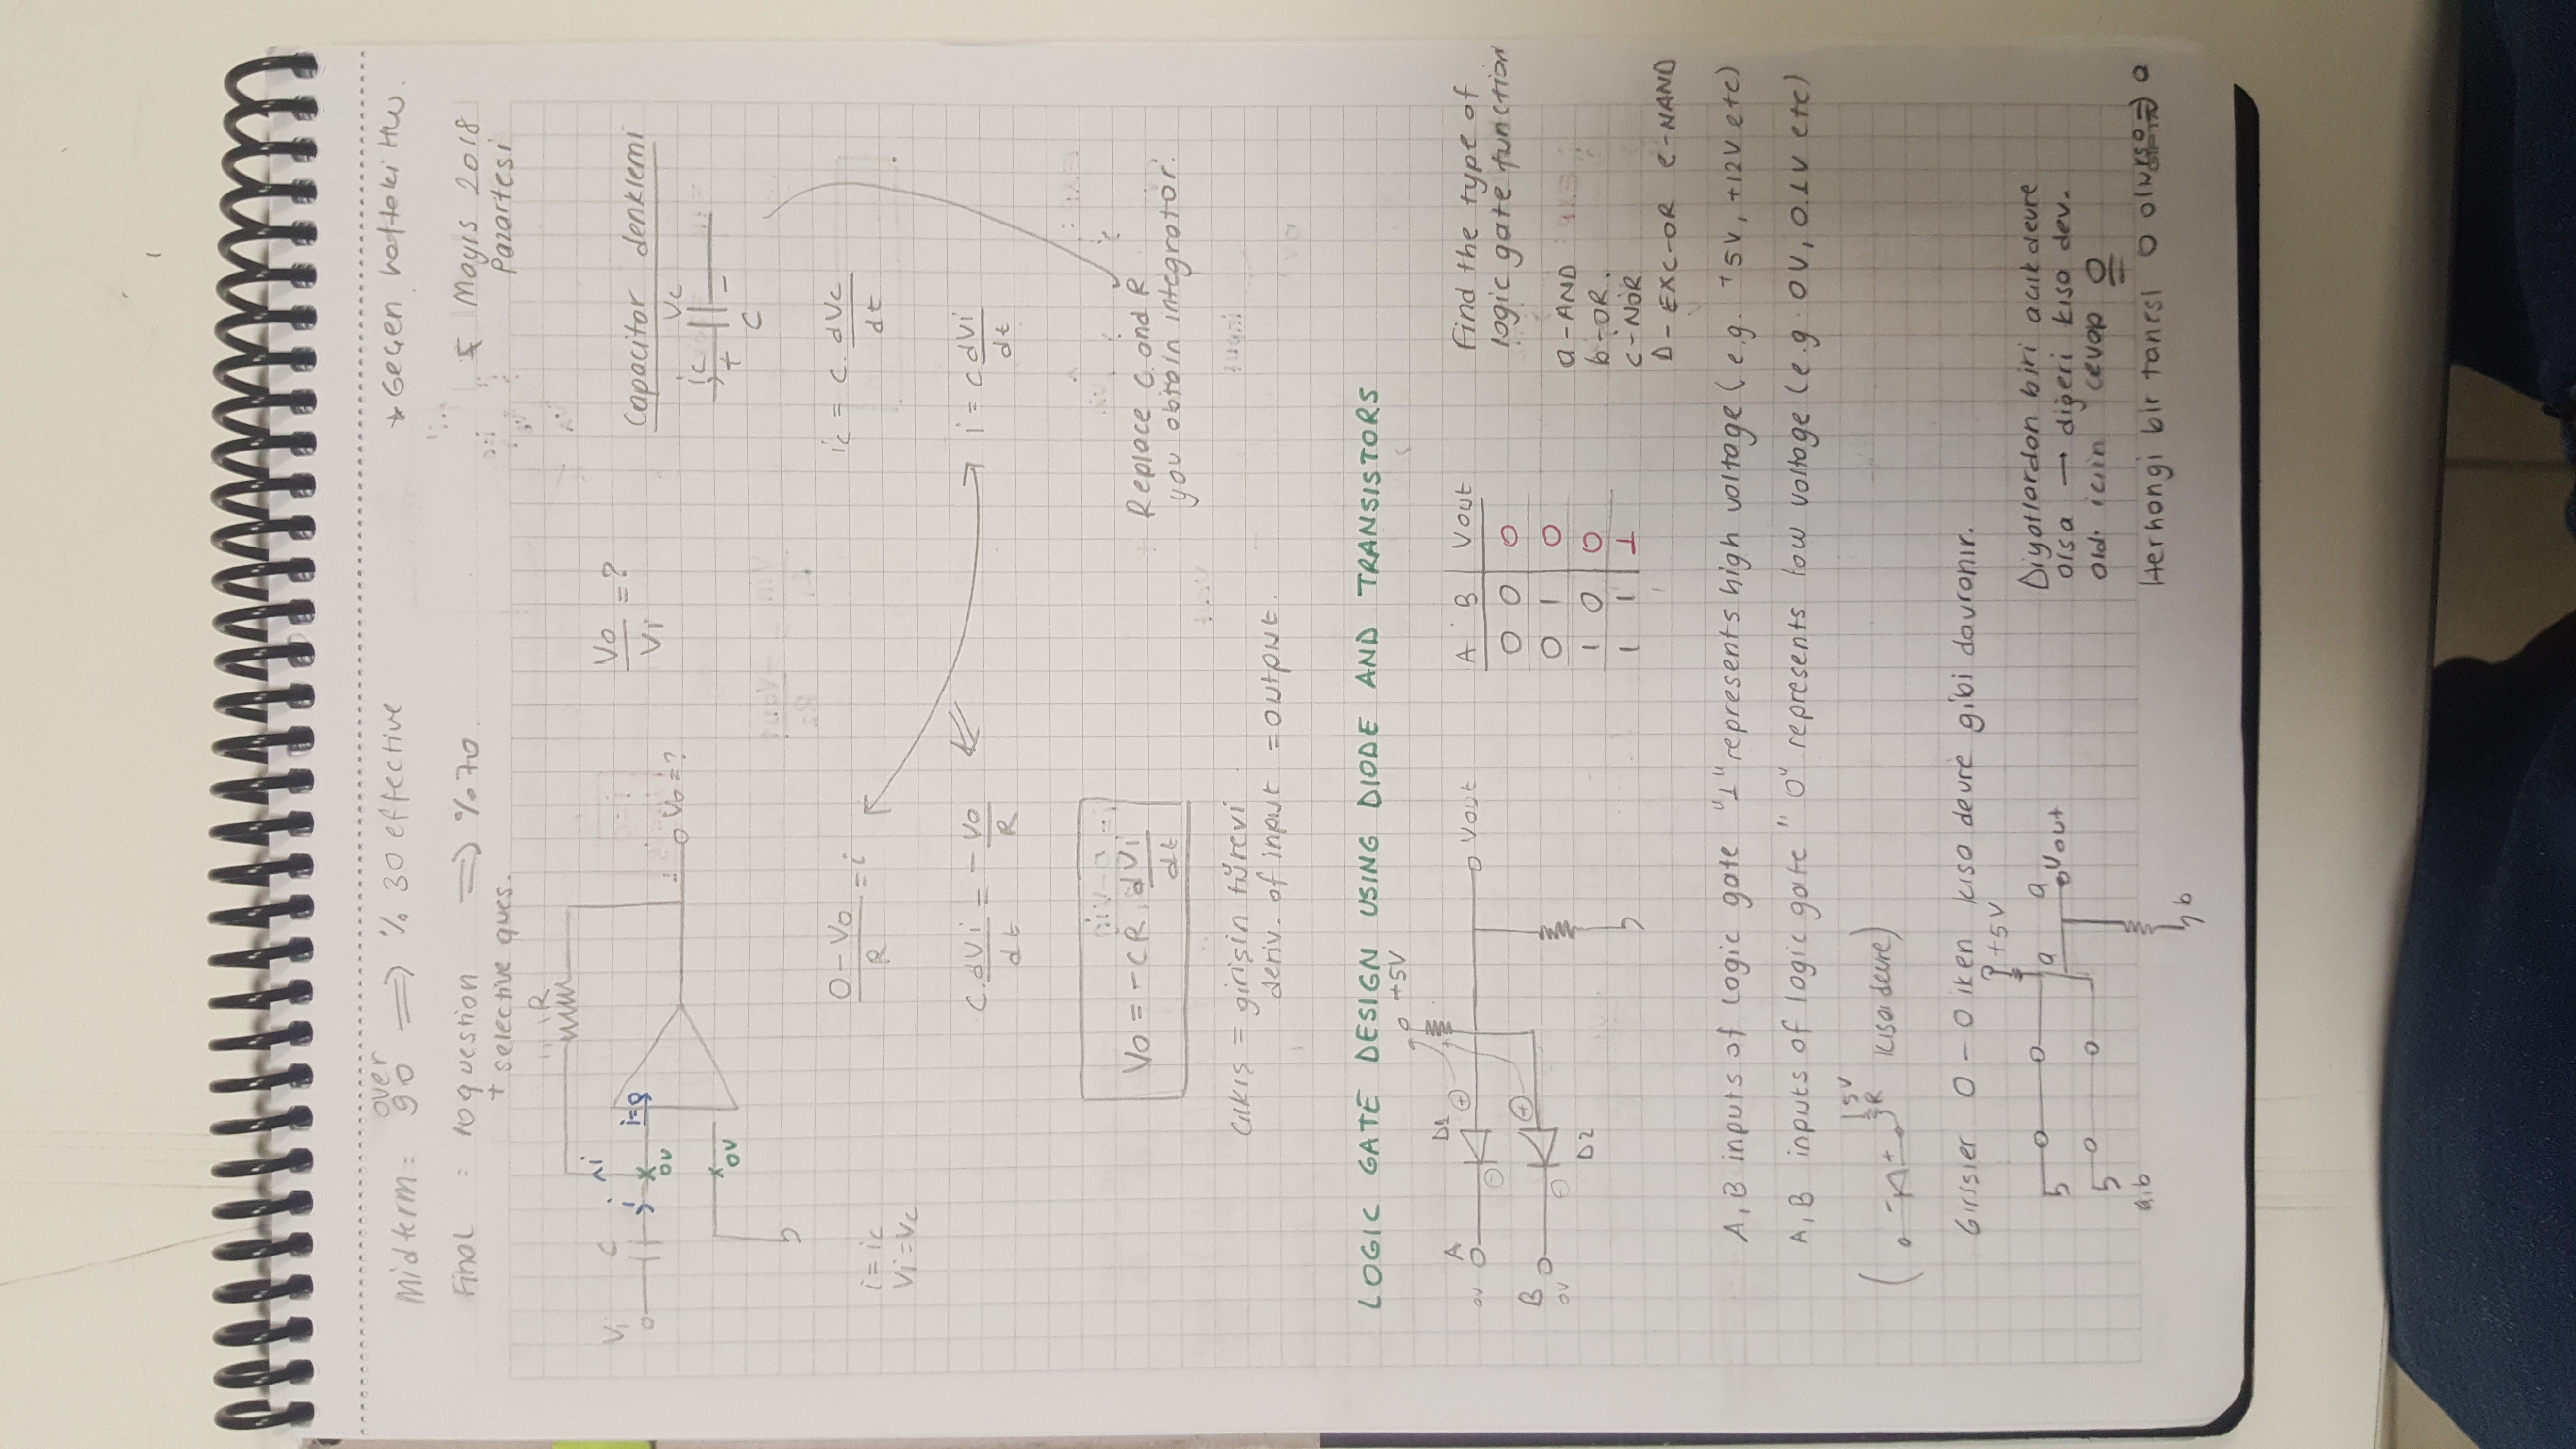 Midterm = over 90 => % 30 effective
* Geçen haftaki HW.
Final : 10 question => % 70.
+ selective ques.
Mayıs 2018
Pazartesi
R
i
Vi
C
i
i=0
0V
0V
Vo=?
Vo/Vi = ?
Capacitor denklemi
Vc
ic
+ -
C
i = ic
Vi = Vc
(0 - Vo)/R = i
ic = C. dVc/dt
C. dVi/dt = - Vo/R
i = C dVi/dt
Vo = -CR. dVi/dt
Replace C and R
you obtain integrator.
Çıkış = girişin türevi
deriv. of input = output.
LOGIC GATE DESIGN USING DIODE AND TRANSISTORS
+5V
A
D1
0V
Vout
B
0V
D2
A B Vout
0 0 0
0 1 0
1 0 0
1 1 1
Find the type of
logic gate function
a - AND
b - OR.
c - NOR
D - EXC-OR e - NAND
A, B inputs of logic gate "1" represents high voltage (e.g. +5V, +12V etc)
A, B inputs of logic gate "0" represents low voltage (e.g. 0V, 0.1V etc)
5V
R
( - + kısa devre)
Girişler 0 - 0 iken kısa devre gibi davranır.
+5V
a
a
Vout
a,b
b
Diyotlardan biri açık devre
olsa → diğeri kısa dev.
old. için cevap 0
Herhangi bir tanesi 0 olursa => 0